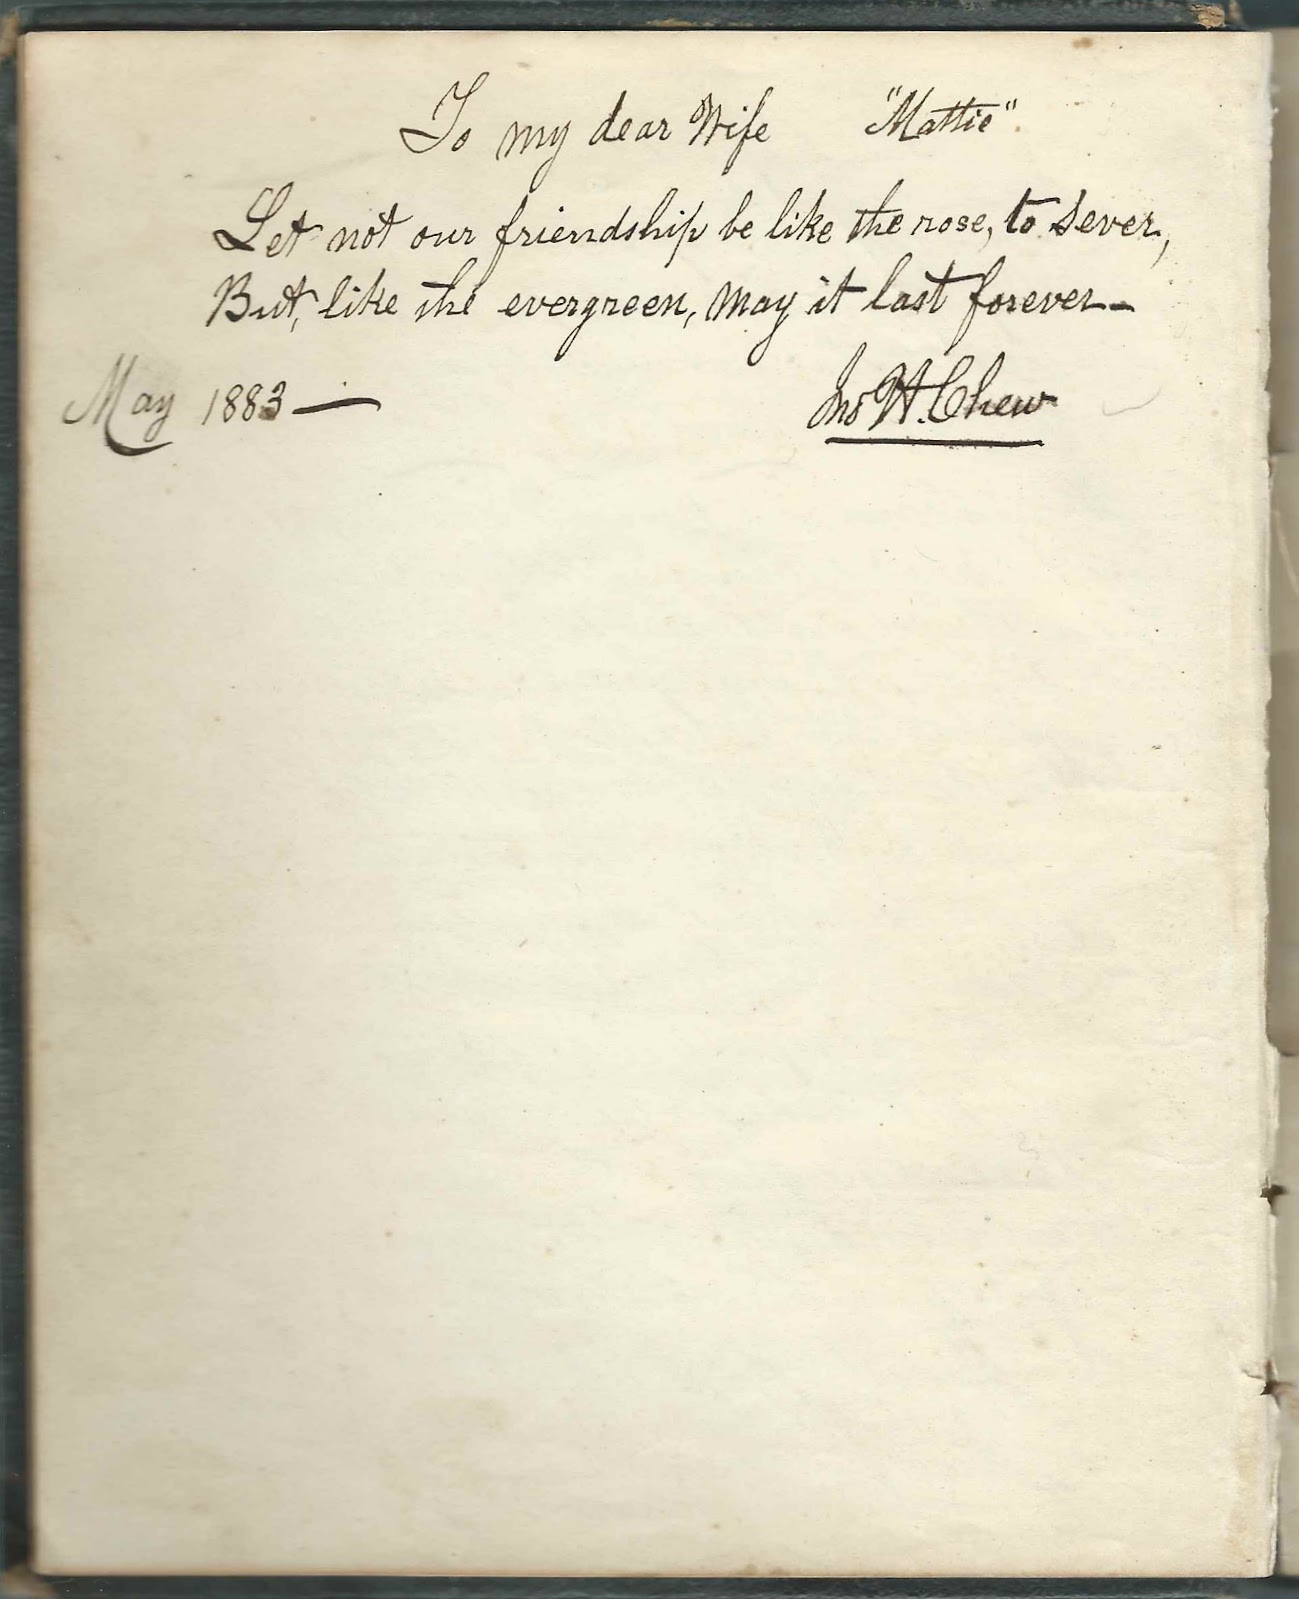 To my dear Wife "Mattie".
Let not our friendship be like the rose, to sever,
But, like the evergreen, may it last forever—
May 1883—
Jno H. Chew